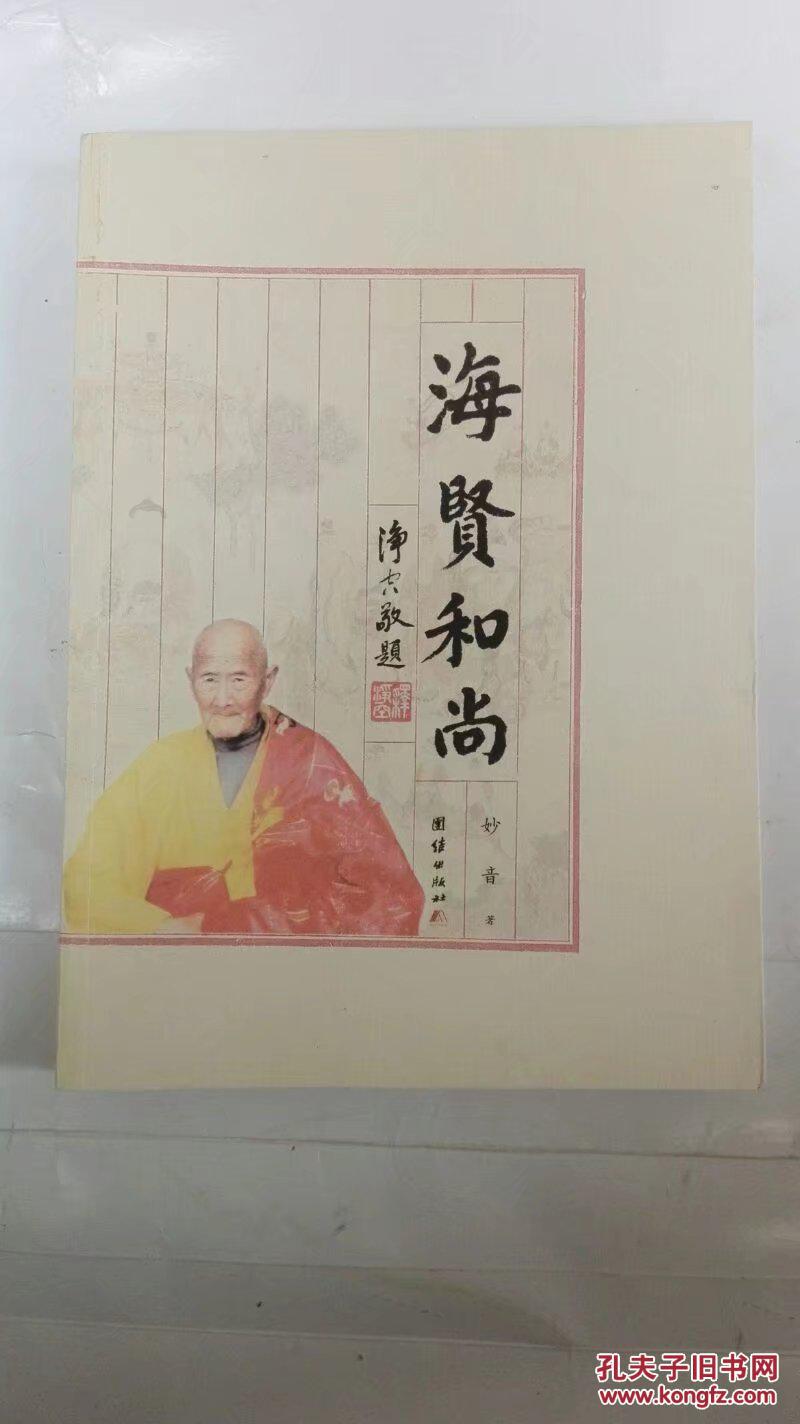 海賢和尚
淨空敬題
釋淨空
妙音 著
團結出版社
孔夫子旧书网
www.kongfz.com